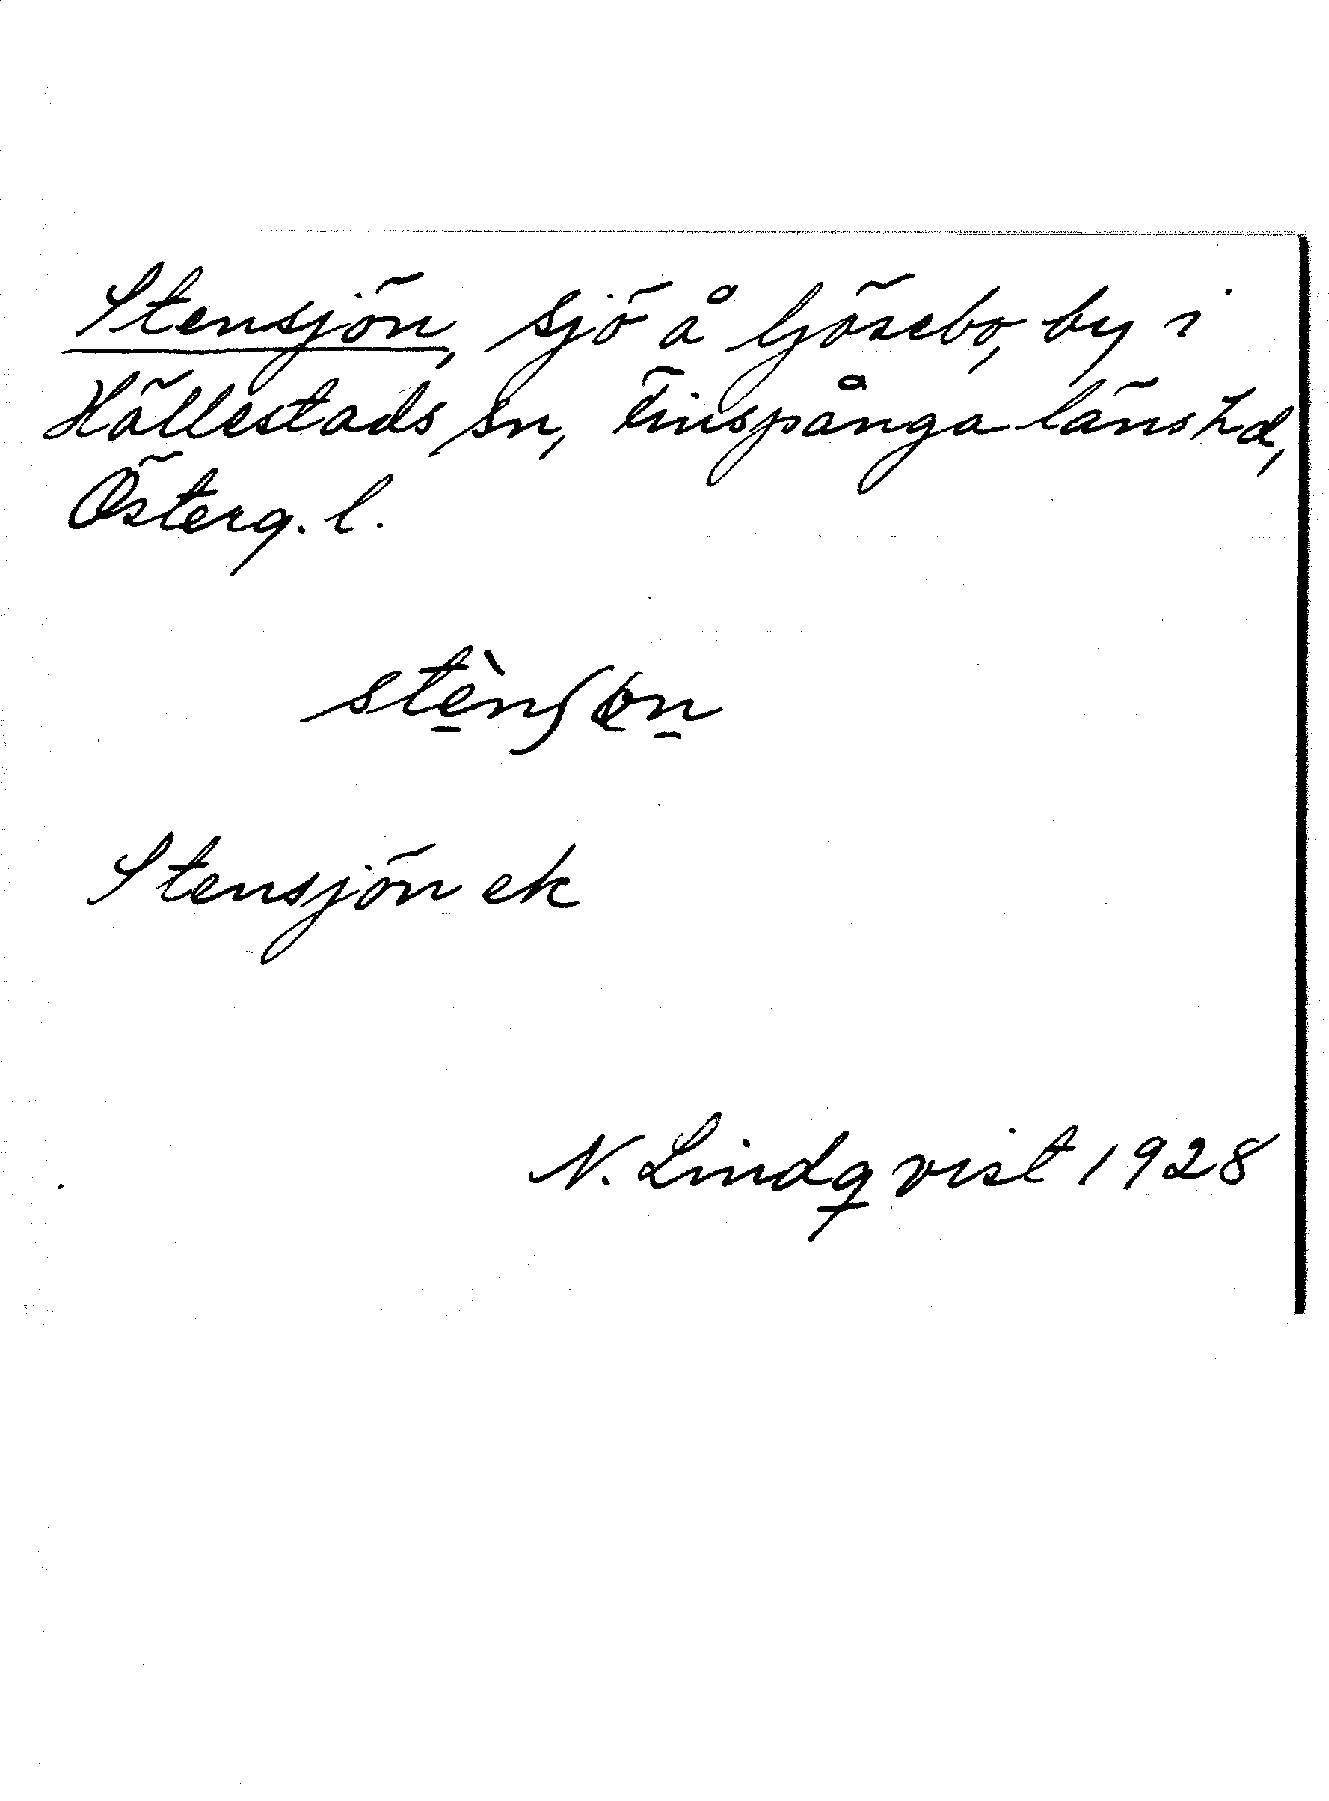 Stensjön, sjö å Gösebo, by i
Hällestads sn, Finspånga läns hd,
Österg. l.
stènʃɵn
Stensjön ek
N. Lindqvist 1928